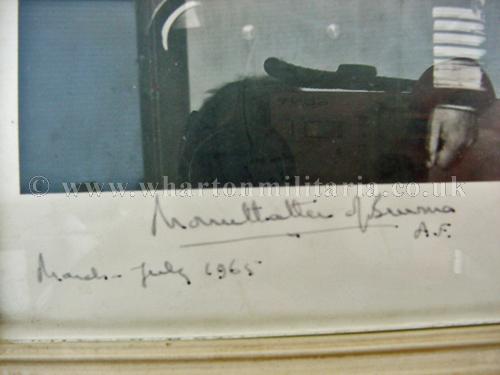 © www.whartonmilitaria.co.uk
Mountbatten of Burma
A.F.
March - July 1965